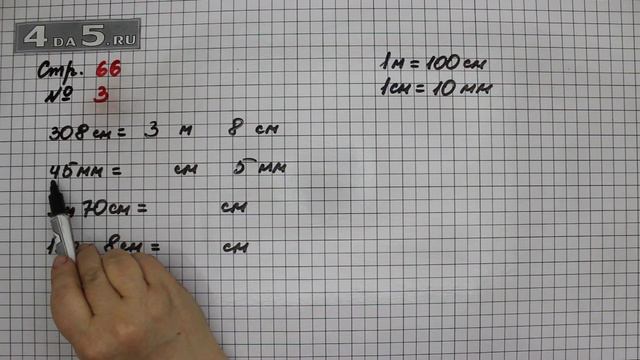 4DA5.RU
Стр. 66
№ 3
308 см = 3 м 8 см
45 мм = см 5 мм
70 см = см
8 см = см
1 м = 100 см
1 см = 10 мм